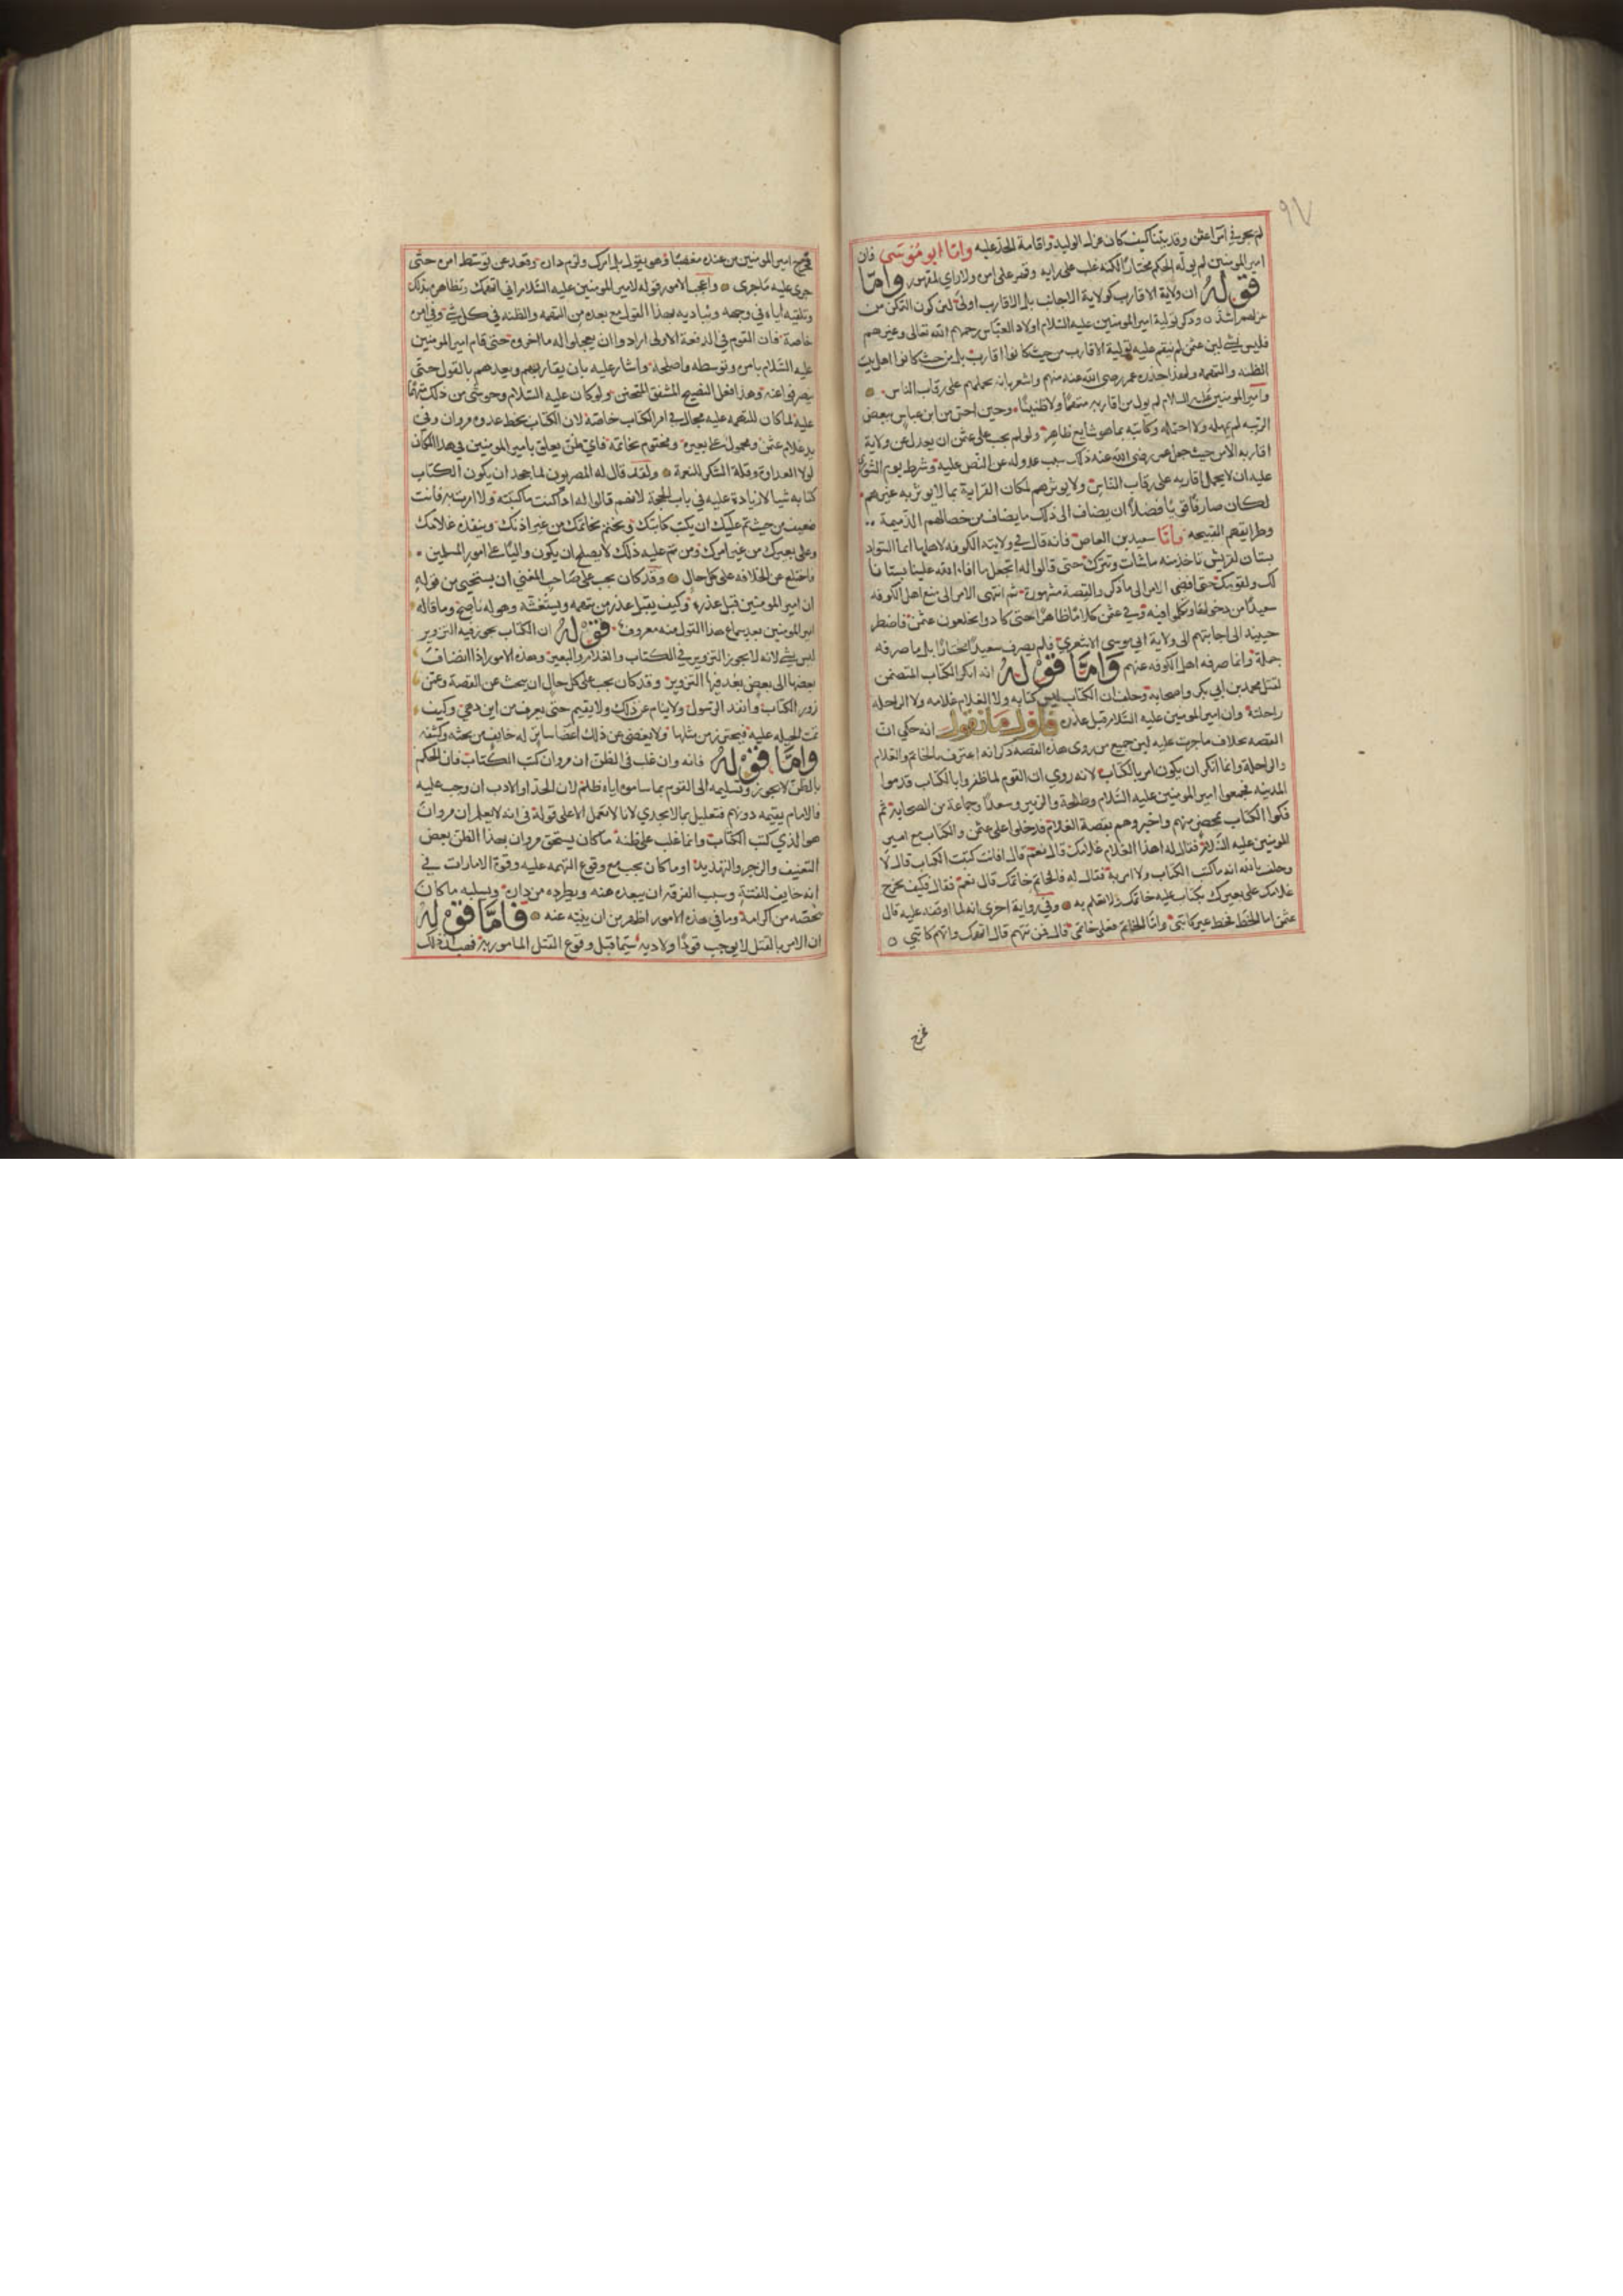 ٩٧
لم يجر في امر اعثمن وقد بيّنا كيف كان عزله الوليد واقامة الحد عليه وامّا ابو مُوسَى فان
امير المومنين لم يولّه الحكم مختارًا لكنه غلب على رايه وقهر على امره ولا راي لمقهور وامّا
قولهُ ان ولاية الاقارب كولاية الاجانب بل الاقارب اولى لمن كون التمكن من
عزلهم اشدّ ٥ وذكر تولية امير المومنين عليه السّلام اولاد العبّاس رحمهم الله تعالى وغيرهم
فليس بشي لان عثمن لم ينقم عليه تولية الاقارب من حيث كانوا اقارب بل من حيث كانوا اهل بيت
الظنه والتهمه ولهذا حذره عمر رضي الله عنه منهم واشعر بانه يحملهم على رقاب الناس
وامير المومنين عليه السلام لم يول من اقاربه متهمًا ولا ظنينًا وحين احس من ابن عباس ببعض
الريبه لم يمهله ولا احتمله وكاتبه بما هو شايع ظاهر ولو لم يجب على عثمن ان يعدل عن ولاية
اقاربه الا من حيث جعل عمر رضي الله عنه ذلك سبب عدوله عن النّص عليه وشرط يوم الشورى
عليه ان لا يحمل اقاربه على رقاب النّاس ولا يوثرهم لمكان القرابة بما لا يوثر به غيرهم
لكان صارفًا قويًا فضلاً ان يضاف الى ذلك ما يضاف من خصالهم الذميمة
وطرايقهم القبيحه وامّا سعيد بن العاص فانه قال في ولايته الكوفه لاهلها انما السّواد
بستان لقريش تاخذ منه ما شات وتترك حتى قالوا له اتجعل ما افاء الله علينا بستانا
لك ولقومك حتى افضى الامر الى ما ذكر والقصة مشهورة ثم انتهى الامر الى منع اهل الكوفه
سعيدًا من دخولها وتكلموا فيه وفي عثمن كلامًا ظاهرًا حتى كادوا يخلعون عثمن فاضطر
حينيذ الى اجابتهم الى ولاية ابي موسى الاشعري فلم يصرف سعيدًا مختارًا بل ما صرفه
جملة وانما صرفه اهل الكوفه عنهم وَامّا قولهُ انه انكر الكتاب المتضمن
لقتل محمد بن ابي بكر واصحابه وحلف ان الكتاب ليس كتابه ولا الغلام غلامه ولا الراحله
راحلته وان امير المومنين عليه السّلام قبل عذره فاول ما نقول انه حكى انّ
القصه بخلاف ما جرت عليه لان جميع من روى هذه القصه ذكر انه اعترف بالخاتم والغلام
والراحلة وانما انكر ان يكون امر بالكتاب لانه روي ان القوم لما ظفروا بالكتاب قدموا
المدينه فجمعوا امير المومنين عليه السّلام وطلحة والزبير وسعدًا وجماعة من الصحابة ثم
فكوا الكتاب بمحضر منهم واخبروهم بقصة الغلام فدخلوا على عثمن والكتاب مع امير
المومنين عليه السّلام فقال له اهذا الغلام غلامك قال نعم قال افانت كتبت الكتاب قال لا
وحلف بالله انه ما كتب الكتاب ولا امر به فقال له فالخاتم خاتمك قال نعم فقال فكيف يخرج
غلامك على بعيرك بكتاب عليه خاتمك ولا تعلم به وفي رواية اخرى انه لما اوقفه عليه قال
عثمن اما الخط فخط عير كاتبي وامّا الخاتم فعلى خاتمي قال فمن تتهم قال اتهمك واتهم كاتبي ٥
فخرج
فخرج امير المومنين من عنده مغضبًا وهو يقول بل امرك ولزم داره وقعد عن توسّط امره حتّى
جرى عليه ما جرى واعجب الامور قوله لامير المومنين عليه السّلام اني اتهمك وتظاهره بذلك
وتلقيه اياه في وجهه ويناديه بهذا القول مع بعده من التهمه والظنه في كل شي وفي امره
خاصة فان القوم في الدفعة الاولى ارادوا ان يعجلوا له ما اخروه حتى قام امير المومنين
عليه السّلام بامره وتوسطه واصلحه واشار عليه بان يقاربهم ويعدهم بالقول حتى
ينصرفوا عنه وهذا فعل النصيح المشفق المتحنن ولو كان عليه السّلام وحوشي من ذلك متهمًا
عليه لما كان للتهمه عليه مجال في امر الكتاب خاصّة لان الكتاب بخط عدوه مروان وفي
يد غلام عثمن ومحمول على بعيره ومختوم بخاتمه فاي ظنّ يعلق بامير المومنين في هذا المكان
لولا العداوة وقلة الشكر للنعمة ولقد قال له المصريون لما جحد ان يكون الكتاب
كتابه شيا لا زيادة عليه في باب الحجة لانهم قالوا له اذا كنت ما كتبته ولا امرت به فانت
ضعيف من حيث تم عليك ان يكتب كاتبك ويختم بخاتمك من غير اذنك وينفذ غلامك
وعلى بعيرك من غير امرك ومن تم عليه ذلك لا يصلح ان يكون واليًا على امور المسلمين
فاختلع عن الخلافه على كل حال وقد كان يجب على صاحب المغني ان يستحيي من قوله
ان امير المومنين قبل عذره وكيف يقبل عذر من يتهمه ويستغشّه وهو له ناصح وما قاله
امير المومنين بعد سماع هذا القول منه معروف قولهُ ان الكتاب يجوز فيه التزوير
ليس بشي لانه لا يجوز التزوير في الكتاب والغلام والبعير وهذه الامور اذا انضافت
بعضها الى بعض بعد فيها التزوير وقد كان يجب على كل حال ان يبحث عن القصة وعمّن
زور الكتاب وانفذ الرّسول ولا ينام عن ذلك ولا يقيم حتى يعرف من اين دهي وكيف
تمت الحيله عليه فيحترز من مثلها ولا يغضي عن ذلك اغضا ساتر له خايف من بحثه وكشفه
وَامّا قولهُ فانه وان غلب في الظن ان مروان كتب الكتاب فان الحكم
بالظن لا يجوز وتسليمه الى القوم بما ساموه اياه ظلم لان الحد او الادب ان وجب عليه
فالامام يقيمه دونهم فتعليل بما لا يجدي لانا لا نعمل الا على قوله في انه لا يعلم ان مروان
هو الذي كتب الكتاب وانما غلب على ظنه ما كان يستحق مروان بهذا الظن بعض
التعنيف والزجر والتهديد او ما كان يجب مع وقوع التهمه عليه وقوة الامارات في
انه خايف للفتنة وسبب الفرقه ان يبعده عنه ويطرده من داره ويسلبه ما كان
يخصّه من اكرامه وما في هذه الامور اظهر من ان ينبّه عنه فامّا قولهُ
ان الامر بالقتل لا يوجب قودًا ولا ديه سيّما قبل وقوع القتل المامور به فهب ان ذلك